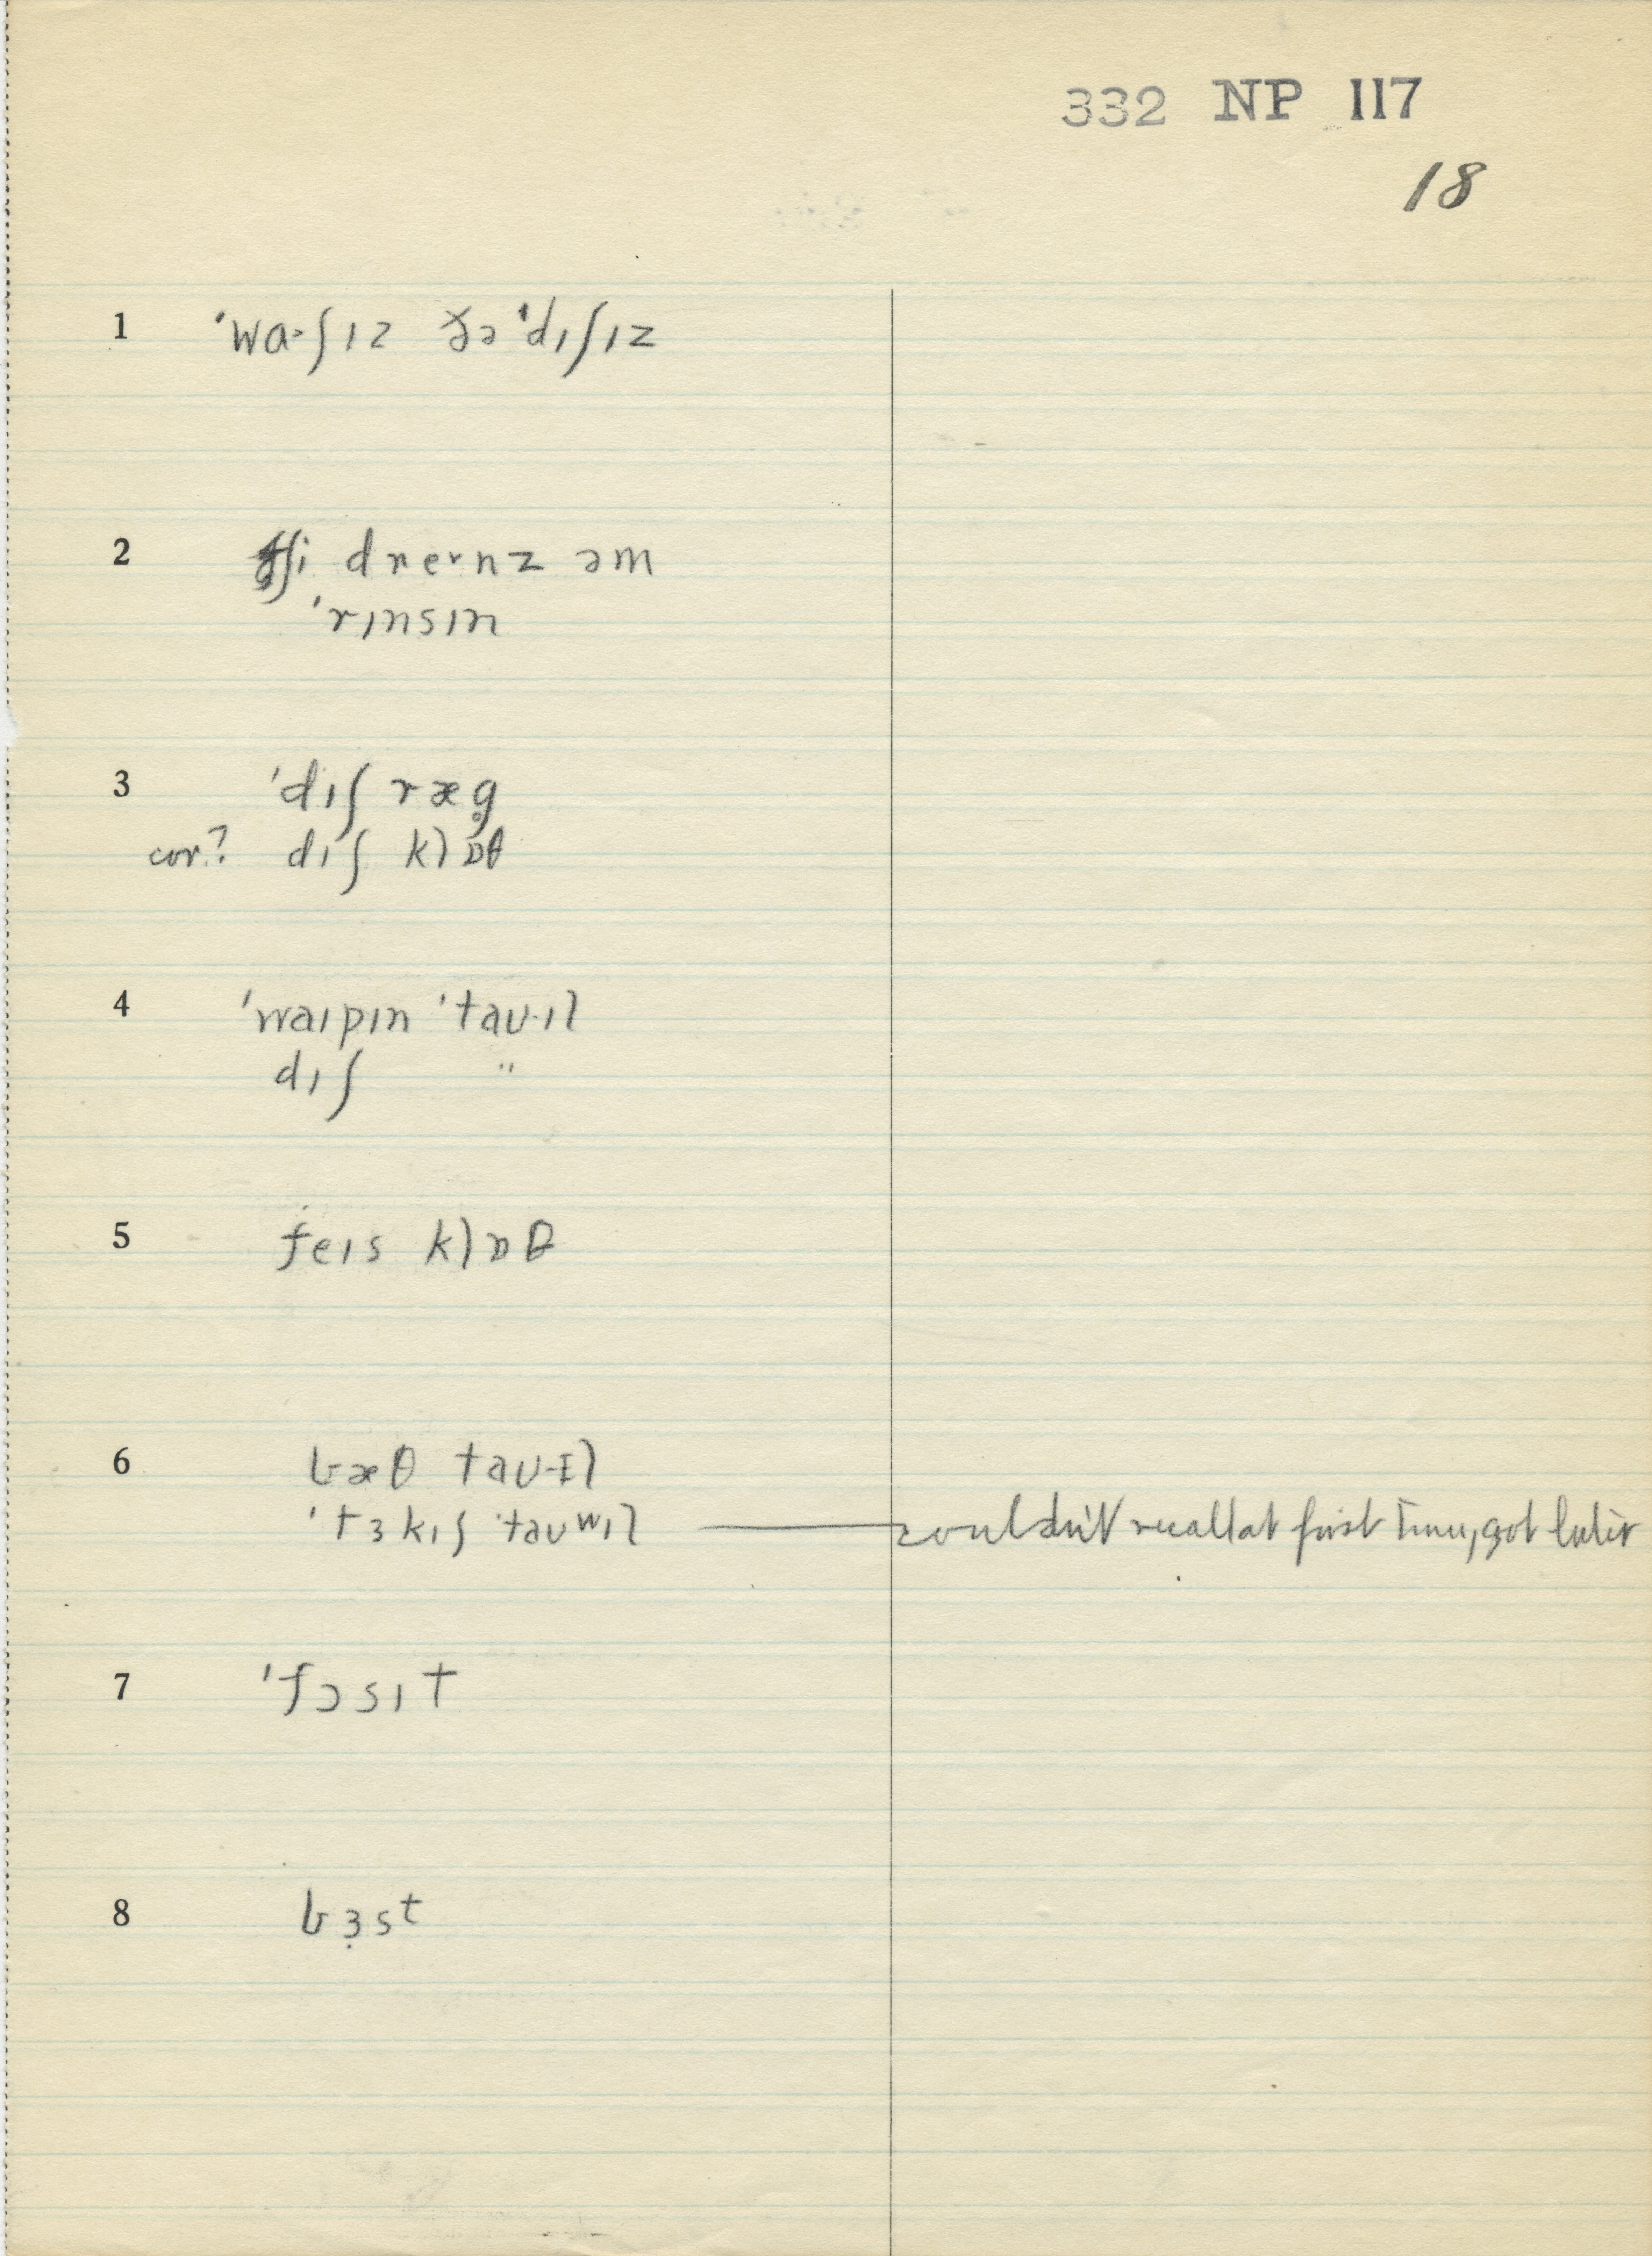 332 NP 117
18
1 'wa·ʃɪz ðə 'dɪʃɪz
2 ʃi dreɪnz əm
'rɪnsɪn
3 'dɪʃ ræg̥
cor? dɪʃ klɒθ
4 'waɪpɪn 'taʊ·ɪl
dɪʃ "
5 feɪs klɒθ
6 bæθ taʊ·ɪl
'tɜkɪʃ 'taʊʷɪl — couldn't recall at first time, got later
7 'fɔsɪt
8 bɜ̣sᵗ